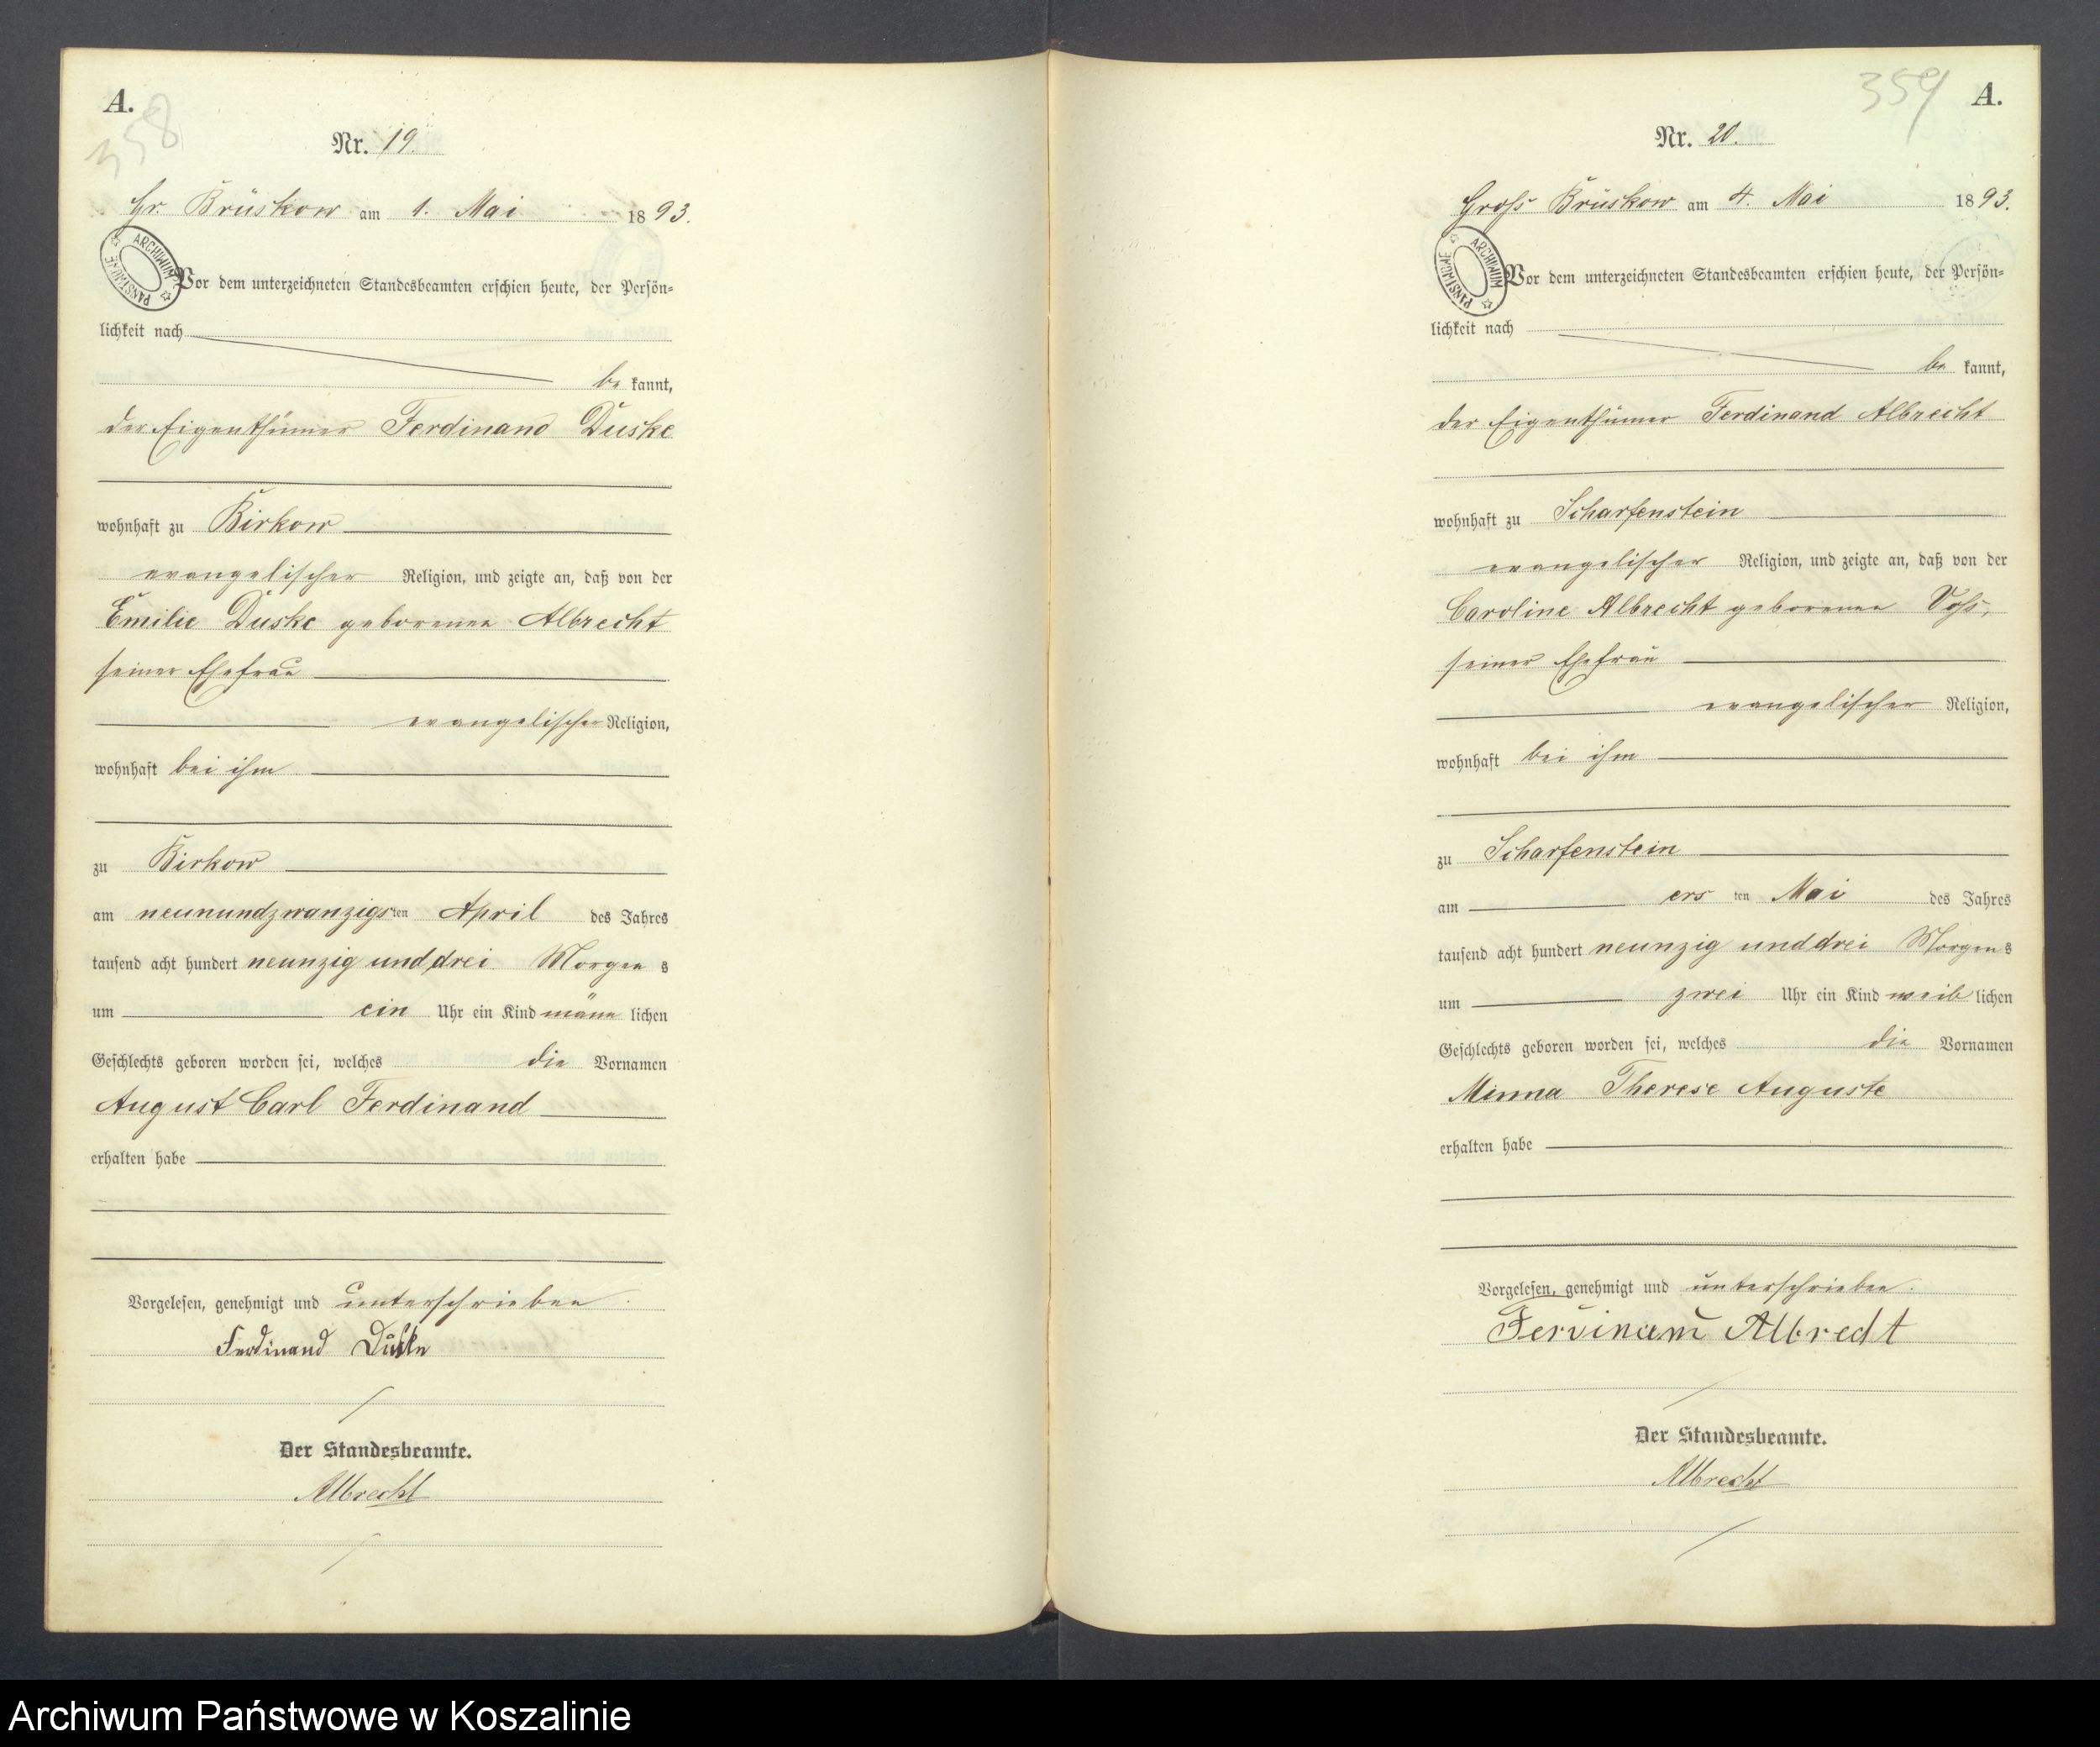 A.
358
Nr. 19.
Gr. Brüskow am 1. Mai 1893.
ARCHIWUM PAŃSTWOWE
Vor dem unterzeichneten Standesbeamten erschien heute, der Persön=
lichkeit nach
be kannt,
der Eigenthümer Ferdinand Duske
wohnhaft zu Birkow
evangelischer Religion, und zeigte an, daß von der
Emilie Duske geborenen Albrecht
seiner Ehefrau
evangelischer Religion,
wohnhaft bei ihm
zu Birkow
am neunundzwanzigsten April des Jahres
tausend acht hundert neunzig und drei Morgens
um ein Uhr ein Kind männlichen
Geschlechts geboren worden sei, welches die Vornamen
August Carl Ferdinand
erhalten habe
Vorgelesen, genehmigt und unterschrieben.
Ferdinand Duske
Der Standesbeamte.
Albrecht
359
A.
Nr. 20.
Gross Brüskow am 4. Mai 1893.
ARCHIWUM PAŃSTWOWE
Vor dem unterzeichneten Standesbeamten erschien heute, der Persön=
lichkeit nach
be kannt,
der Eigenthümer Ferdinand Albrecht
wohnhaft zu Scharfenstein
evangelischer Religion, und zeigte an, daß von der
Caroline Albrecht geborenen Voss,
seiner Ehefrau
evangelischer Religion,
wohnhaft bei ihm
zu Scharfenstein
am ersten Mai des Jahres
tausend acht hundert neunzig und drei Morgens
um zwei Uhr ein Kind weiblichen
Geschlechts geboren worden sei, welches die Vornamen
Minna Therese Auguste
erhalten habe
Vorgelesen, genehmigt und unterschrieben.
Ferdinand Albrecht
Der Standesbeamte.
Albrecht
Archiwum Państwowe w Koszalinie